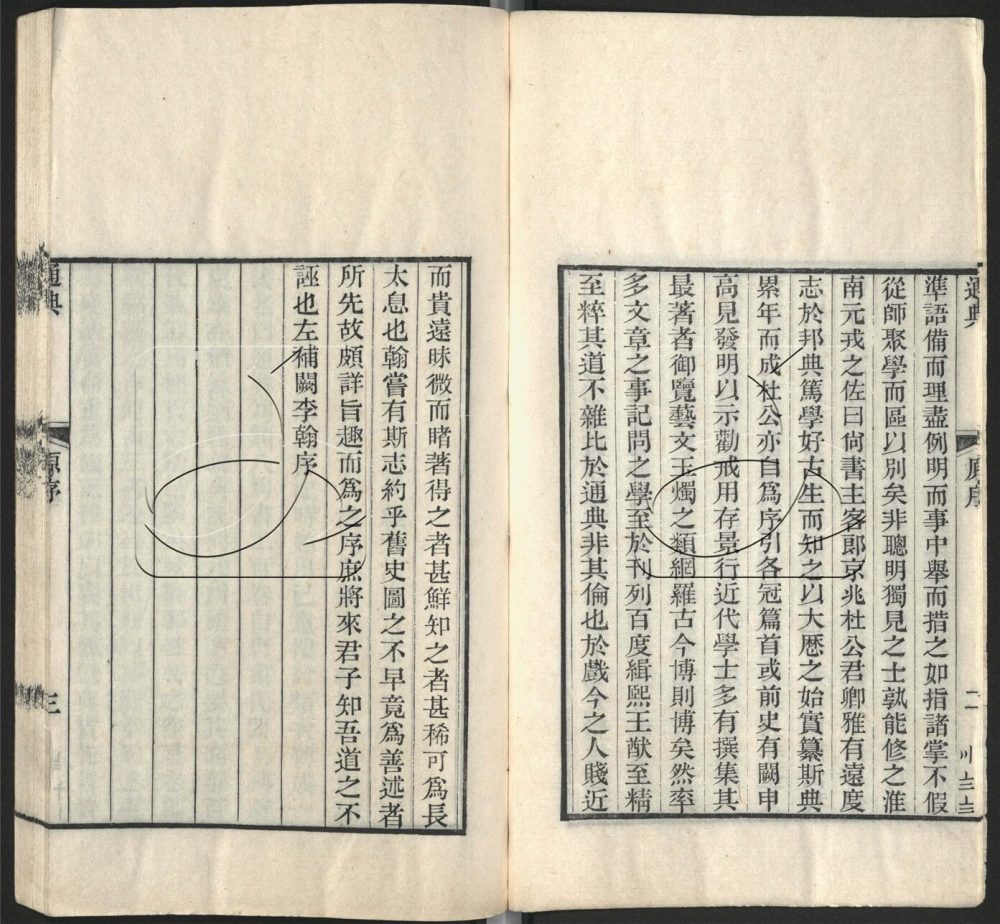 通典
原序
二
準語備而理盡例明而事中舉而措之如指諸掌不假
從師聚學而區以別矣非聰明獨見之士孰能修之淮
南元戎之佐曰尙書主客郎京兆杜公君卿雅有遠度
志於邦典篤學好古生而知之以大厯之始實纂斯典
累年而成杜公亦自爲序引各冠篇首或前史有闕申
高見發明以示勸戒用存景行近代學士多有撰集其
最著者御覽藝文玉燭之類網羅古今博則博矣然率
多文章之事記問之學至於刊列百度緝熙王猷至精
至粹其道不雜比於通典非其倫也於戲今之人賤近
而貴遠昧微而睹著得之者甚鮮知之者甚稀可爲長
太息也翰嘗有斯志約乎舊史圖之不早竟爲善述者
所先故頗詳旨趣而爲之序庶將來君子知吾道之不
誣也左補闕李翰序
通典
原序
三